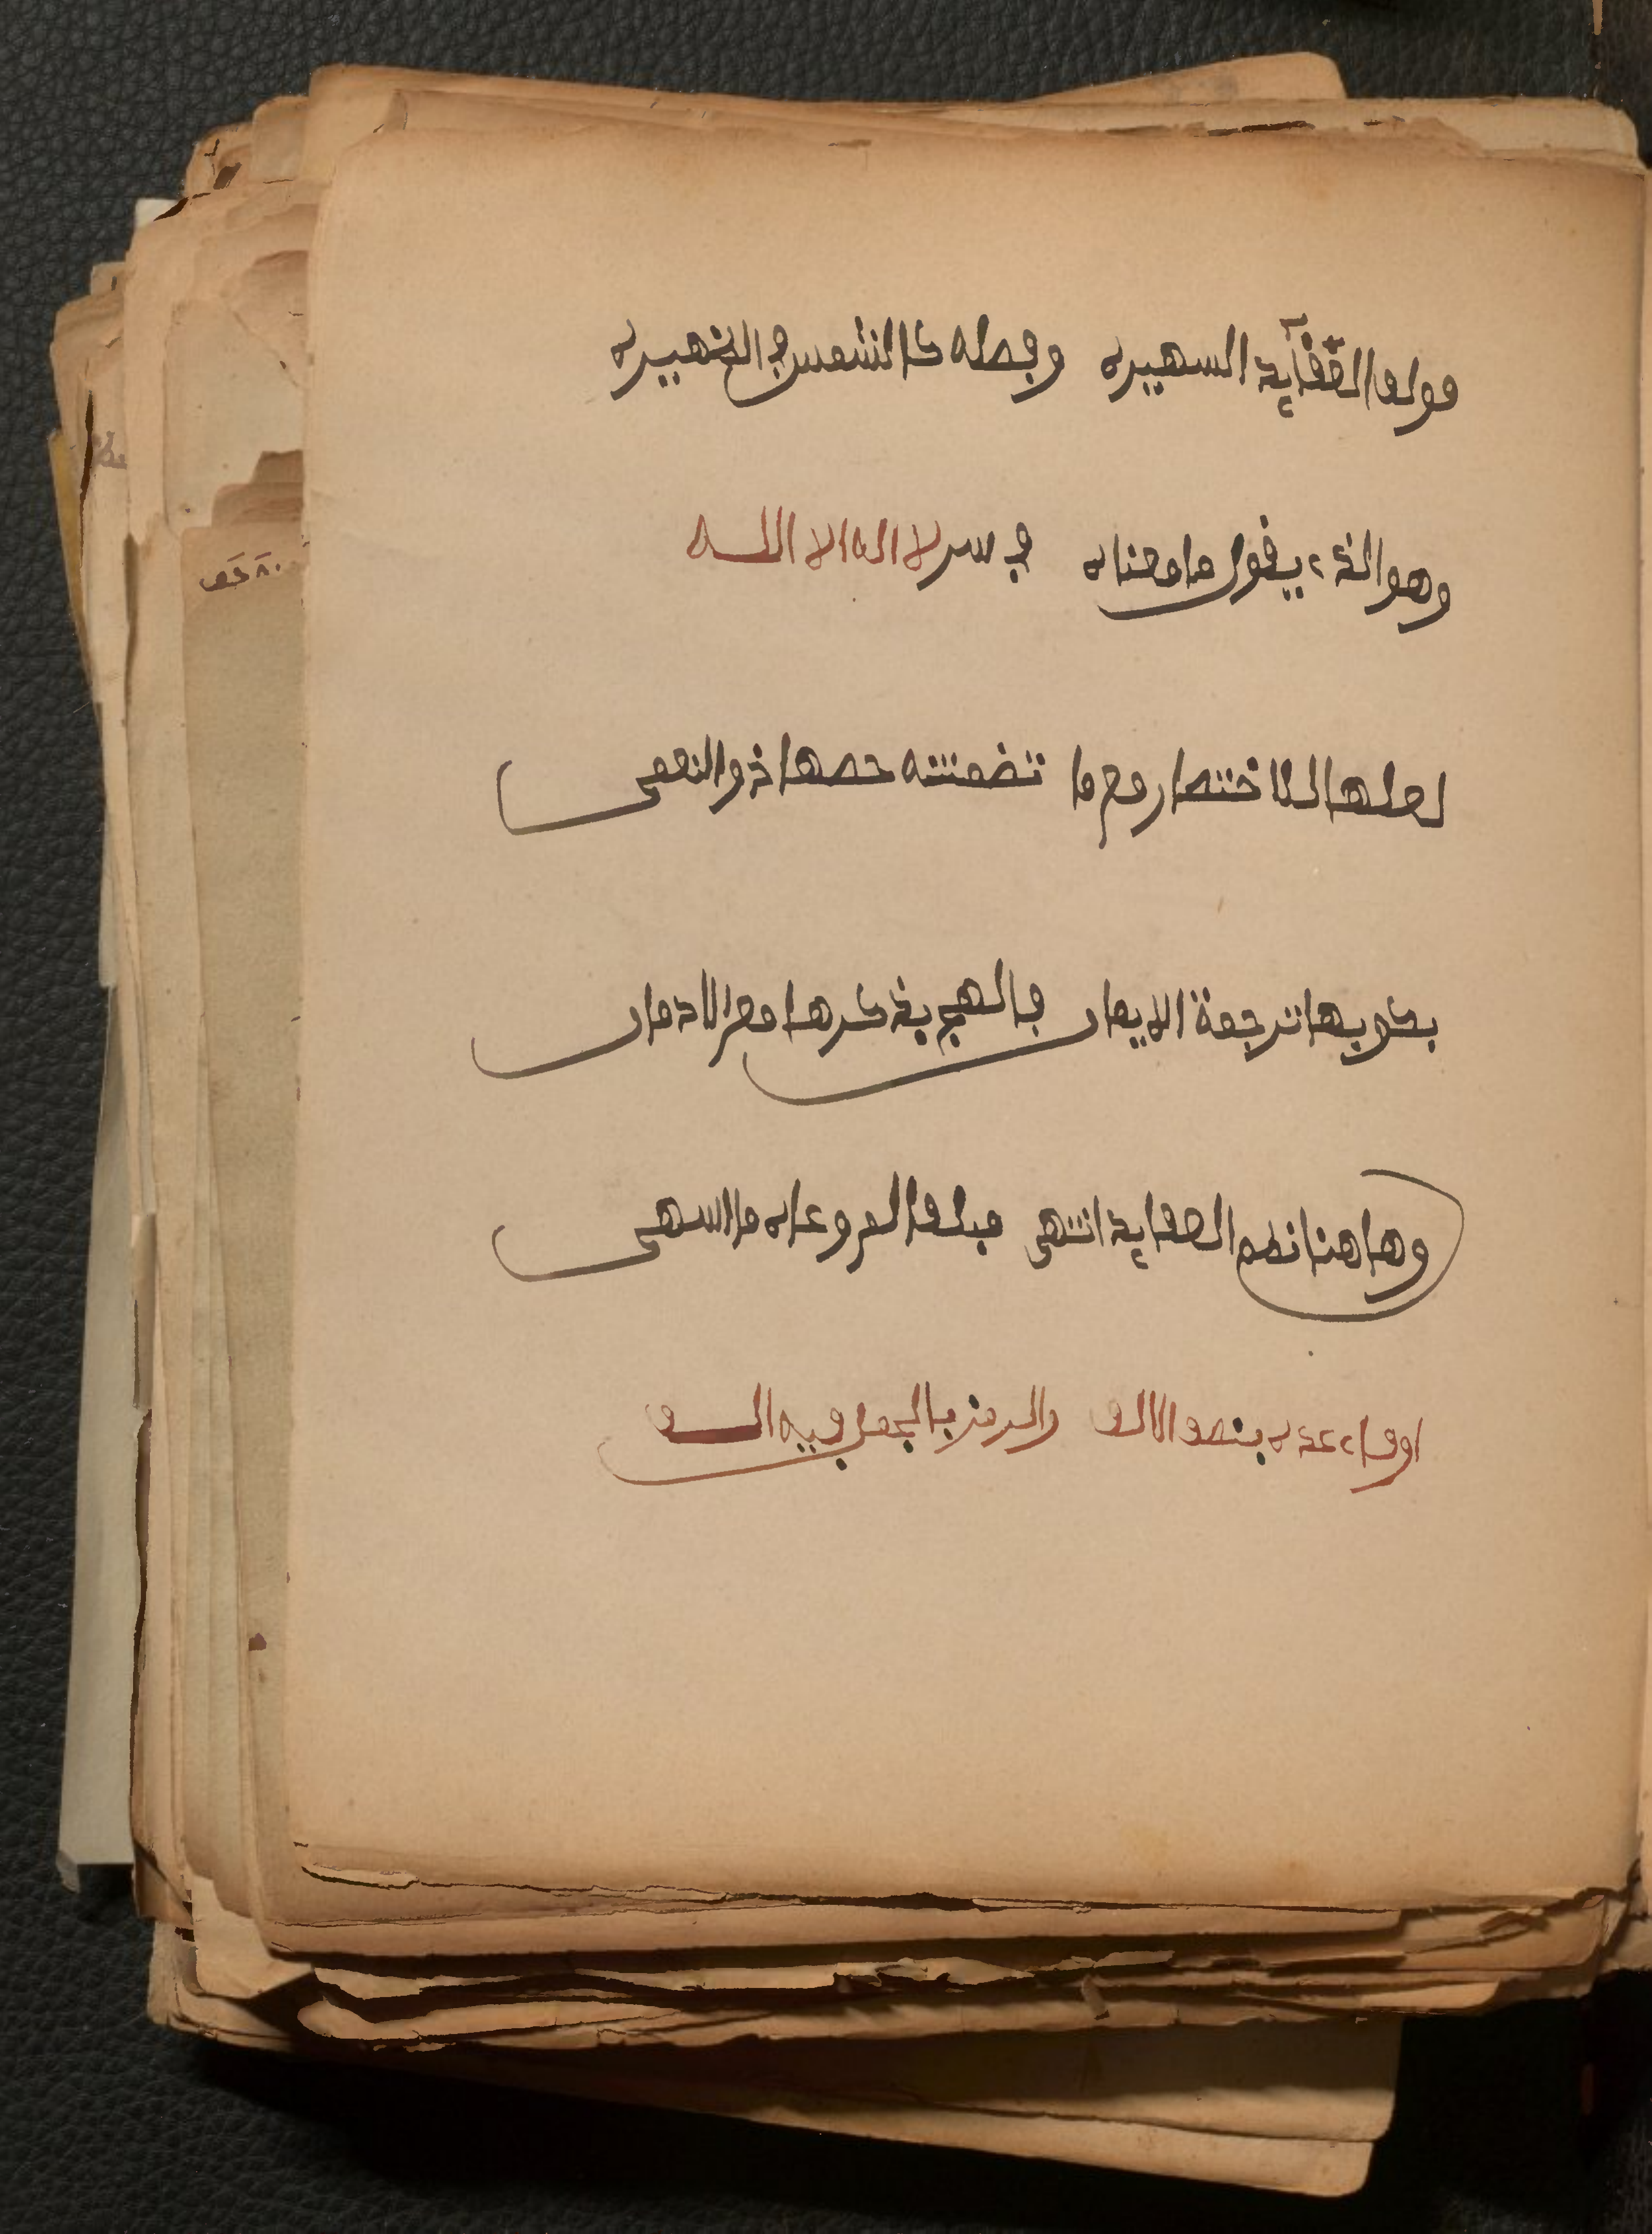 مولف العقايد الشهيره وفضله كالشمس في الظهيره
وهو الذي يقول ما معناه في سر لا اله الا الله
لعلها للاختصار مع ما تضمنته خصها ذو النعمى
بكونها ترجمة الايمان فالهج بذكرها مع الادمان
وها هنا نظم العقايد انتهى مبلغا لمن وعاه ما اشتهى
اوفاء عده بنصف الالف والرمز بالجمل فيه الف